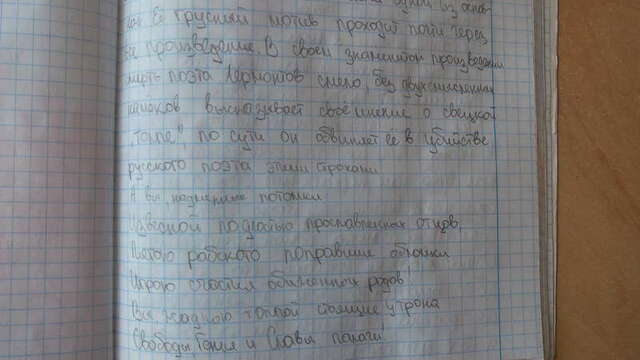 одной из
её грустный мотив проходит почти через
произведение. В своём знаменитом произведении
смерть поэта Лермонтов смело, без двухсмысленных
намёков высказывает своё мнение о свецкой
"толпе", по сути он обвиняет её в убийстве
русского поэта этими строками
А вы, надменные потомки
Извесной подлостью прославленных отцов,
Пятою рабскою поправшие обломки
Игрою счастия обиженных родов!
Вы жадною толпой стоящие у трона
Свободы, Гения и Славы палачи!